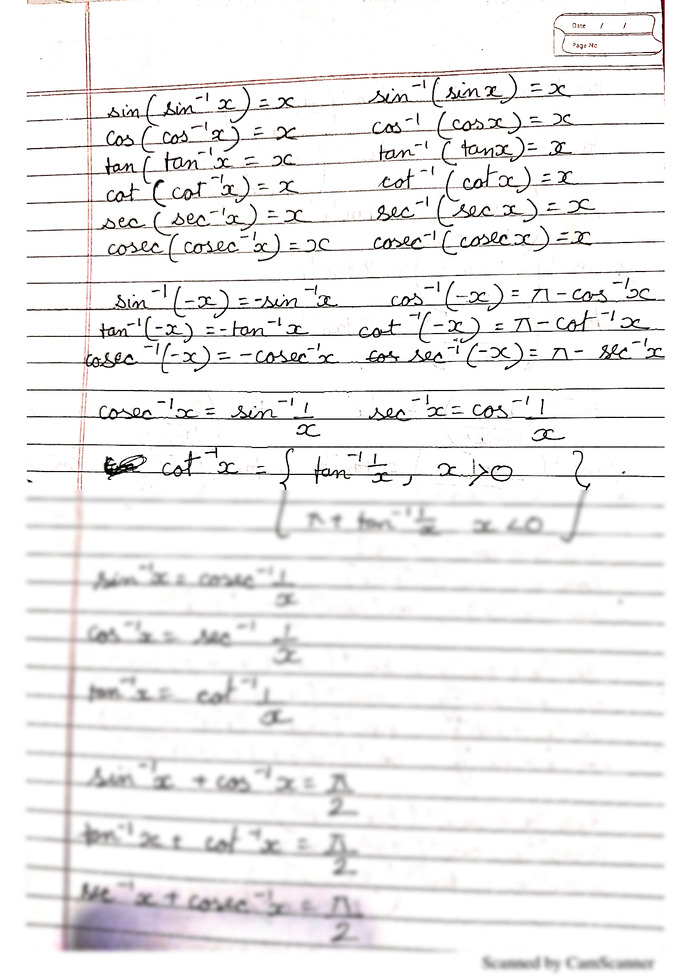 Date / /
Page No
sin(sin⁻¹x) = x sin⁻¹(sinx) = x
cos(cos⁻¹x) = x cos⁻¹(cosx) = x
tan(tan⁻¹x = x tan⁻¹(tanx) = x
cot(cot⁻¹x) = x cot⁻¹(cotx) = x
sec(sec⁻¹x) = x sec⁻¹(sec x) = x
cosec(cosec⁻¹x) = x cosec⁻¹(cosecx) = x
sin⁻¹(-x) = -sin⁻¹x cos⁻¹(-x) = π - cos⁻¹x
tan⁻¹(-x) = -tan⁻¹x cot⁻¹(-x) = π - cot⁻¹x
cosec⁻¹(-x) = -cosec⁻¹x sec⁻¹(-x) = π - sec⁻¹x
cosec⁻¹x = sin⁻¹ 1/x sec⁻¹x = cos⁻¹ 1/x
cot⁻¹x = { tan⁻¹ 1/x, x > 0 }
π + tan⁻¹ 1/x x < 0
sin⁻¹x = cosec⁻¹ 1/x
cos⁻¹x = sec⁻¹ 1/x
tan⁻¹x = cot⁻¹ 1/x
sin⁻¹x + cos⁻¹x = π/2
tan⁻¹x + cot⁻¹x = π/2
sec⁻¹x + cosec⁻¹x = π/2
Scanned by CamScanner